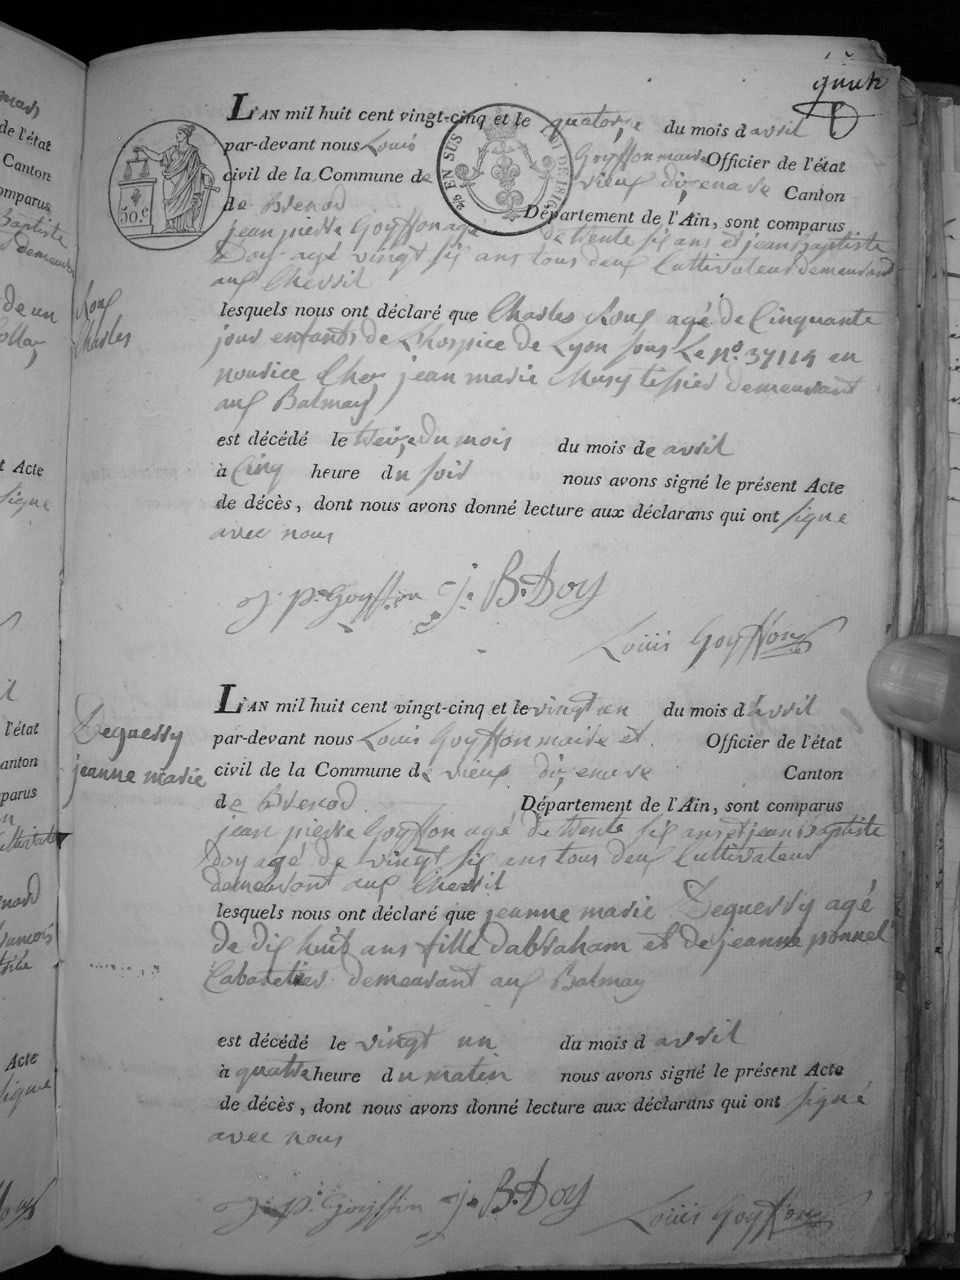 L'AN mil huit cent vingt-cinq et le quatorze du mois d avril
par-devant nous Louis Goyffon maire Officier de l'état
civil de la Commune de vieux dizenave Canton
de Brenod Département de l'Ain, sont comparus
jean pierre Goyffon agé de trente six ans et jean Baptiste
Doy agé vingt six ans tous deux Cultivateur demeurant
aux Chevril
Roux
Charles
lesquels nous ont déclaré que Charles Roux agé de Cinquante
jour enfants de Lhospice de Lyon sous Le no. 37114 en
nourice Cher jean marie Musy tissier demeurant
aux Balmay
est décédé le treize du mois du mois de avril
à Cinq heure du soir nous avons signé le présent Acte
de décès, dont nous avons donné lecture aux déclarans qui ont signe
avec nous
j. pre Goyffon j. B. Doy
Louis Goyffon
L'AN mil huit cent vingt-cinq et le vingt un du mois d avril
Deguerry
jeanne marie
par-devant nous Louis Goyffon maire et Officier de l'état
civil de la Commune de vieux dizenave Canton
de Brenod Département de l'Ain, sont comparus
jean pierre Goyffon agé de trente six ans et jean Baptiste
Doy agé de vingt six ans tous deux Cultivateur
demeurant aux Chevril
lesquels nous ont déclaré que jeanne marie Deguerry agé
de dix huit ans fille dabraham et de jeanne ponnel
Cabaretier demeurant aux Balmay
est décédé le vingt un du mois d avril
à quatre heure du matin nous avons signé le présent Acte
de décès, dont nous avons donné lecture aux déclarans qui ont signé
avec nous
j. p. Goyffon j. B. Doy Louis Goyffon